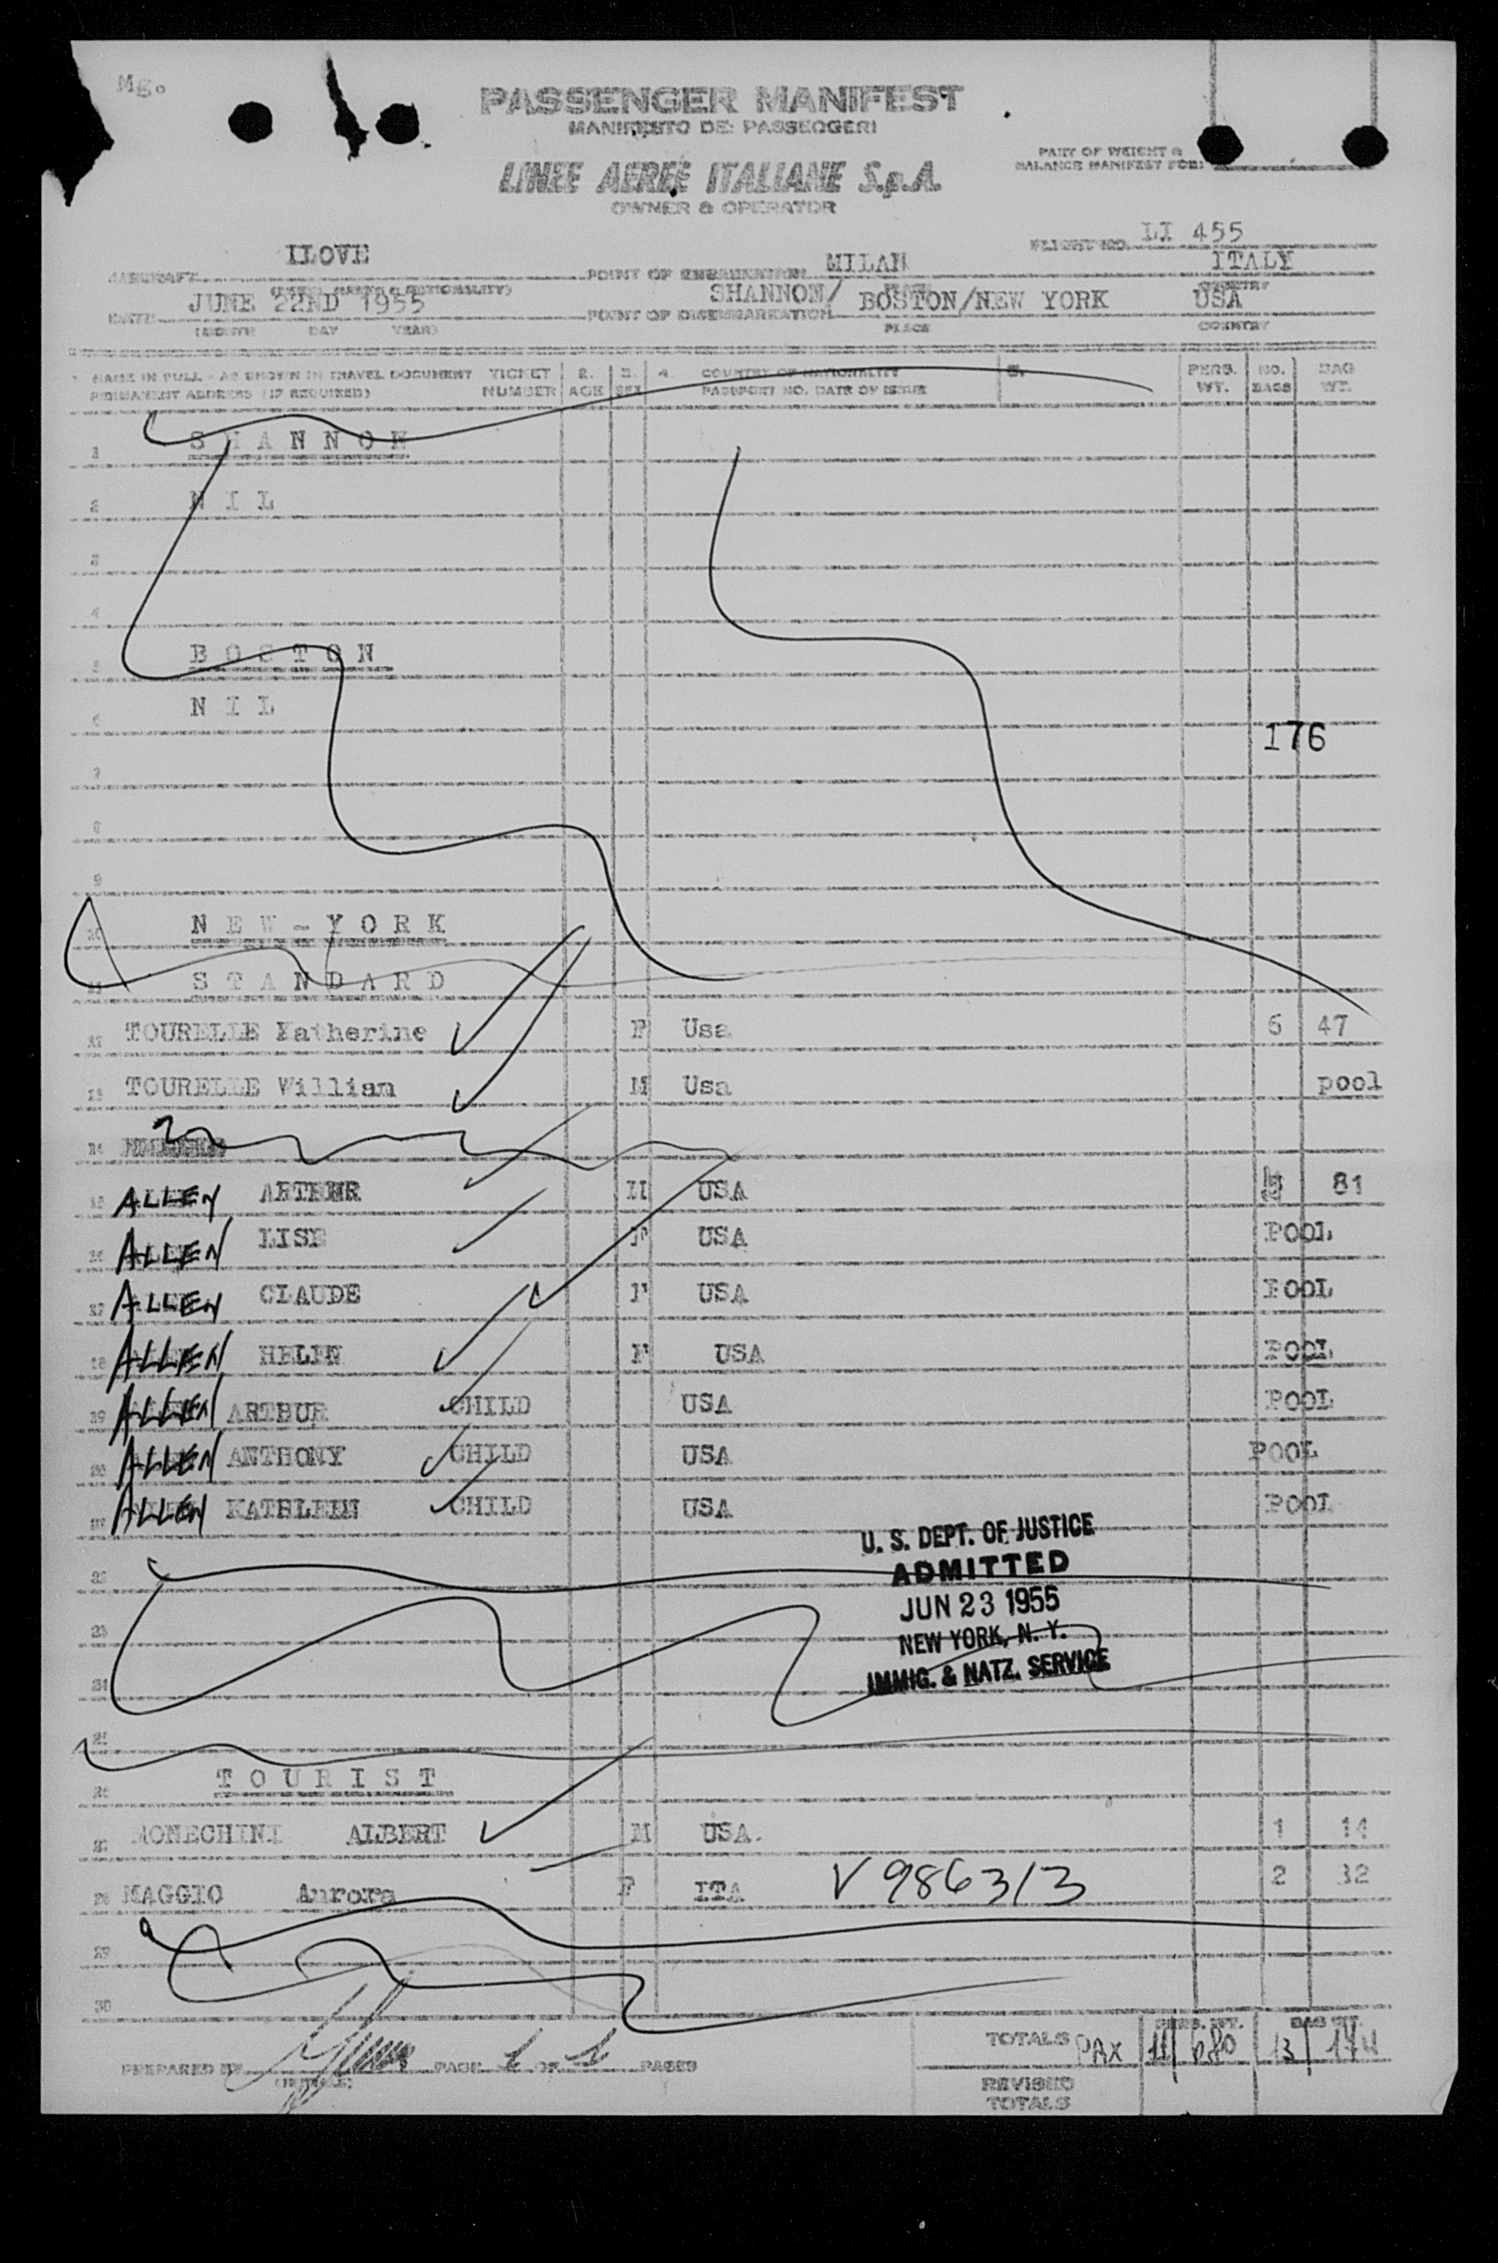 Mg.
PASSENGER MANIFEST
MANIFESTO DEI PASSEGGERI
PART OF WEIGHT &
BALANCE MANIFEST FOR:
LINEE AEREE ITALIANE S.p.A.
OWNER & OPERATOR
FLIGHT NO. LI 455
AIRCRAFT ILOVE POINT OF EMBARKATION MILAN ITALY
DATE JUNE 22ND 1955 POINT OF DISEMBARKATION SHANNON/ BOSTON/NEW YORK USA
(MONTH DAY YEAR) PLACE COUNTRY
NAME IN FULL - AS SHOWN IN TRAVEL DOCUMENT TICKET 2. 3. 4. COUNTRY OF NATIONALITY 5. PERS. NO. BAG
PERMANENT ADDRESS (IF REQUIRED) NUMBER AGE SEX PASSPORT NO. DATE OF ISSUE WT. BAGS WT.
1 SHANNON
2 NIL
3
4
5 BOSTON
6 NIL
176
7
8
9
10 NEW-YORK
11 STANDARD
12 TOURELLE Katherine F Usa 6 47
13 TOURELLE William M Usa pool
14
15 ALLEN USA 81
16 ALLEN LISE F USA POOL
17 ALLEN CLAUDE F USA POOL
18 ALLEN HELEN F USA POOL
19 ALLEN ARTHUR CHILD USA POOL
20 ALLEN ANTHONY CHILD USA POOL
21 ALLEN KATHLEEN CHILD USA POOL
U. S. DEPT. OF JUSTICE
22 ADMITTED
JUN 23 1955
23 NEW YORK, N. Y.
IMMIG. & NATZ. SERVICE
24
25
26 TOURIST
27 MONECHINI ALBERT M USA. 1 14
28 MAGGIO Aurora F ITA V986313 2 32
29
30
PERS. WT. BAG WT.
TOTALS PAX 11/ 680 13/ 174
PREPARED BY PAGE OF PAGES
REVISED
TOTALS